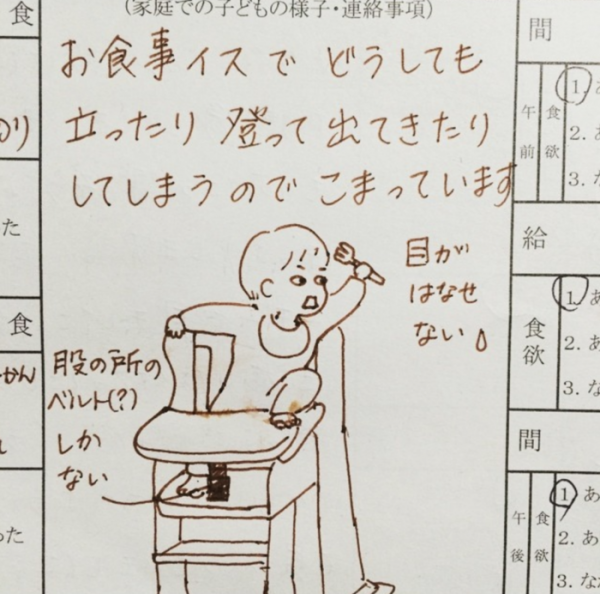 (家庭での子どもの様子・連絡事項)
お食事イスで どうしても
立ったり 登って 出てきたり
してしまうので こまっています
目が
はなせ
ない
股の所の
ベルト(?)
しか
ない
食
った
食
間
午前
食欲
1. あ
2. あ
3. な
給
食欲
1. あ
2. あ
3. な
間
午後
食欲
1 あ
2. あ
3. な